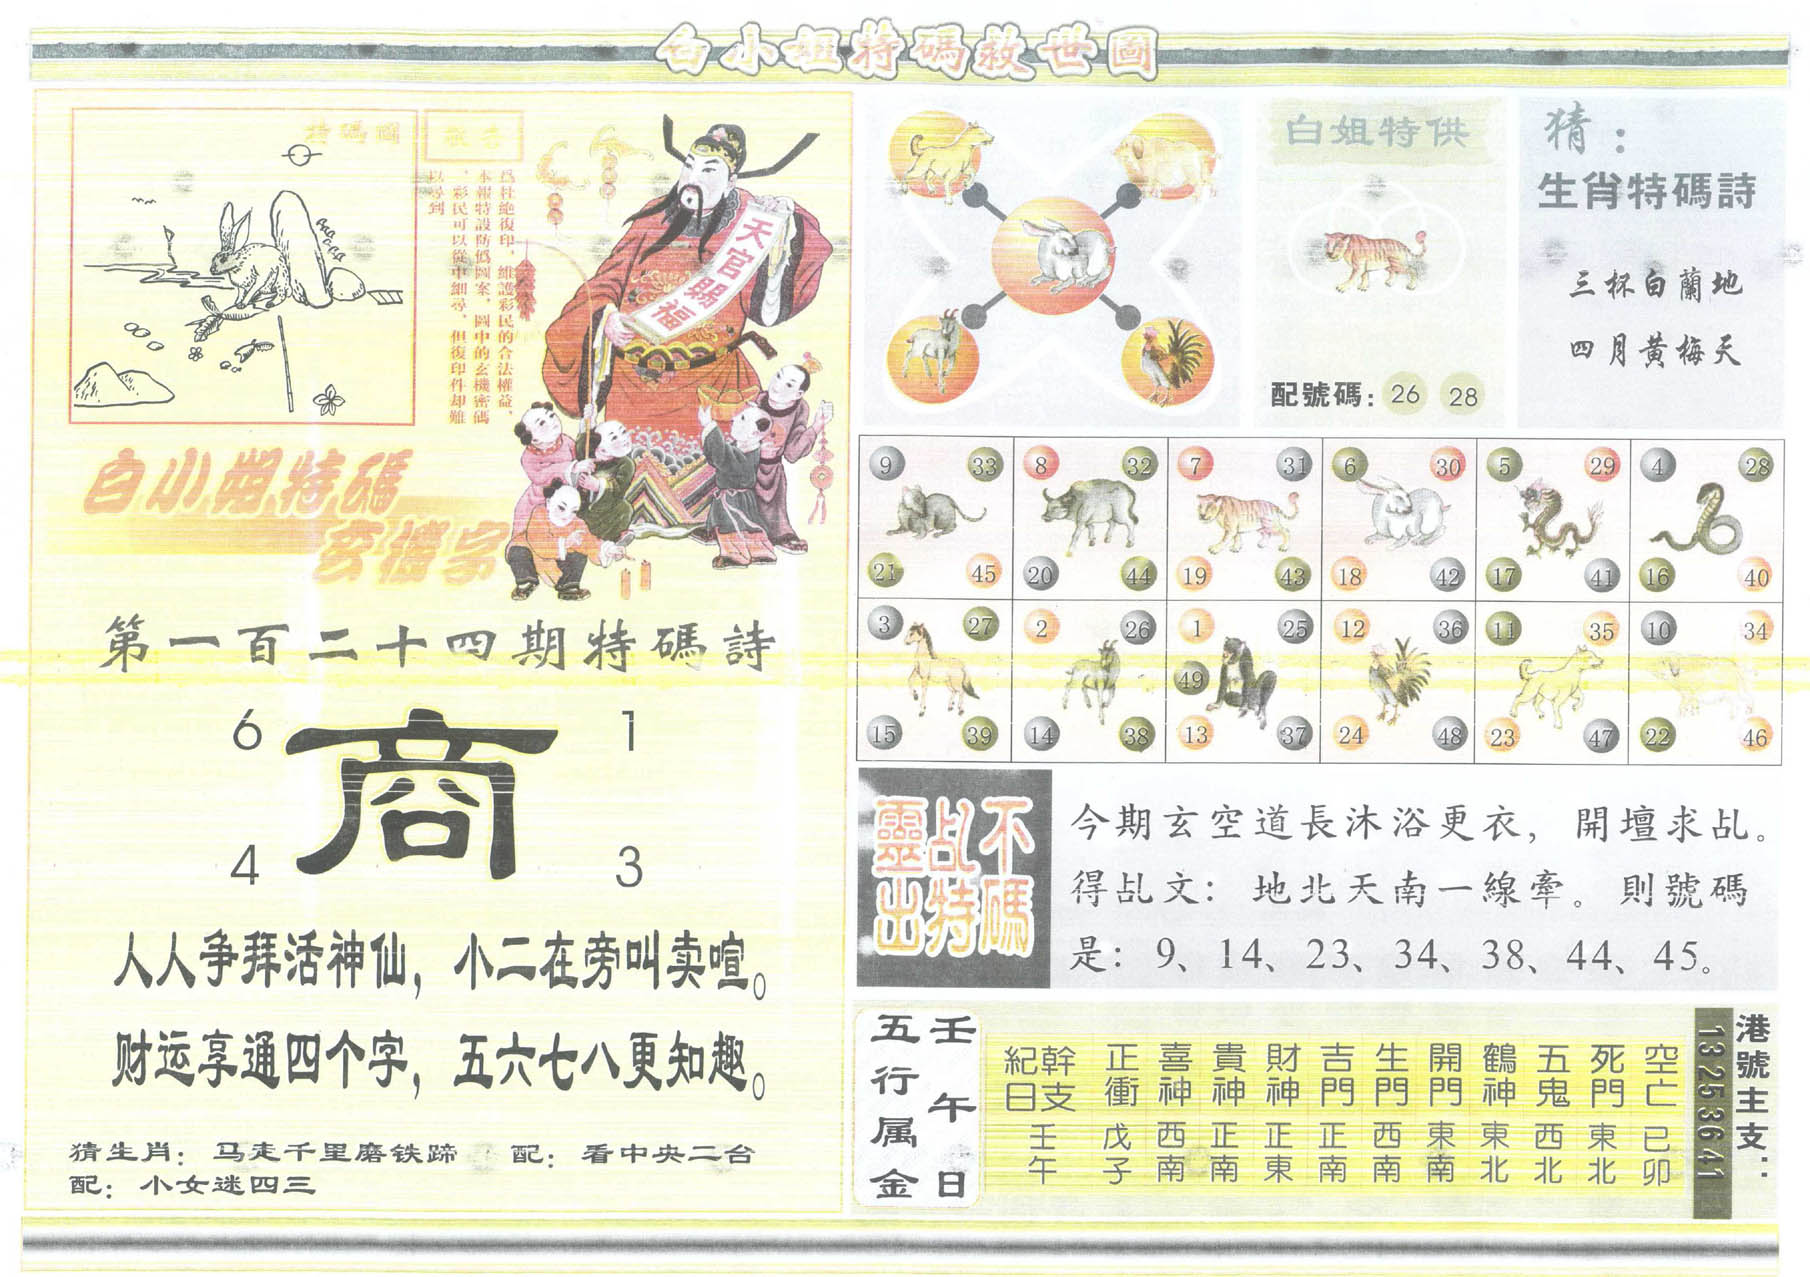 白小姐特碼救世圖
特碼圖
敬告
爲杜絶復印，維護彩民的合法權益，
本報特設防僞圖案，圖中的玄機密碼
，彩民可以從中細尋，但復印件却難
以尋到
天官賜福
白小姐特碼
玄機字
第一百二十四期特碼詩
6 1
商
4 3
人人争拜活神仙，小二在旁叫卖喧。
财运享通四个字，五六七八更知趣。
猜生肖：马走千里磨铁蹄 配：看中央二台
配：小女迷四三
白姐特供
配號碼：26 28
猜：
生肖特碼詩
三杯白蘭地
四月黃梅天
9 33 8 32 7 31 6 30 5 29 4 28
21 45 20 44 19 43 18 42 17 41 16 40
3 27 2 26 1 25 12 36 11 35 10 34
49
15 39 14 38 13 37 24 48 23 47 22 46
不碼
乩特
靈出
今期玄空道長沐浴更衣，開壇求乩。
得乩文：地北天南一線牽。則號碼
是：9、14、23、34、38、44、45。
壬午日
五行属金
紀日幹支 正衝 喜神 貴神 財神 吉門 生門 開門 鶴神 五鬼 死門 空亡
壬午 戊子 西南 正南 正東 正南 西南 東南 東北 西北 東北 巳卯
港號主支：
13 25 36 41